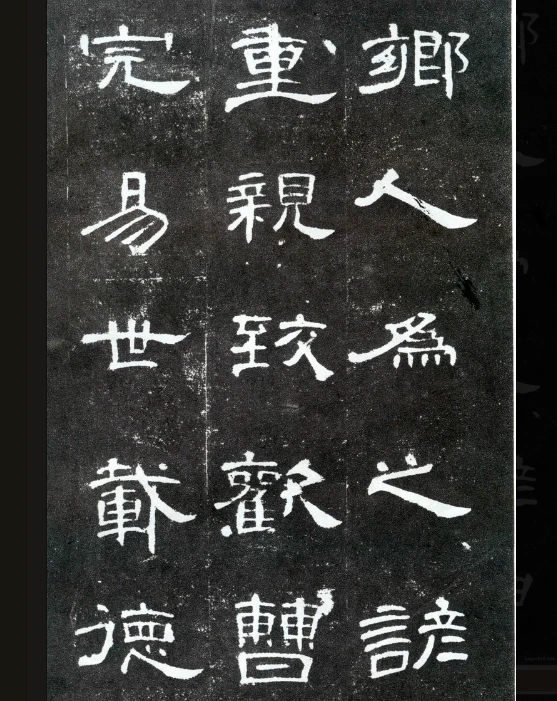 鄉人為之諺
重親致歡曹
完易世載德